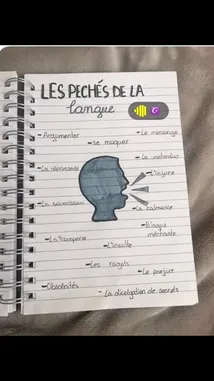 LES PECHÉS DE LA
langue
- Argumenter
- se moquer
- Le mensonge
- La réprimande
- L'injure
- La calomnie
- La tromperie
- L'insulte
- Blague méchante
- Les ragots
- Le parjure
- Obscénités
- La divulgation de secrets